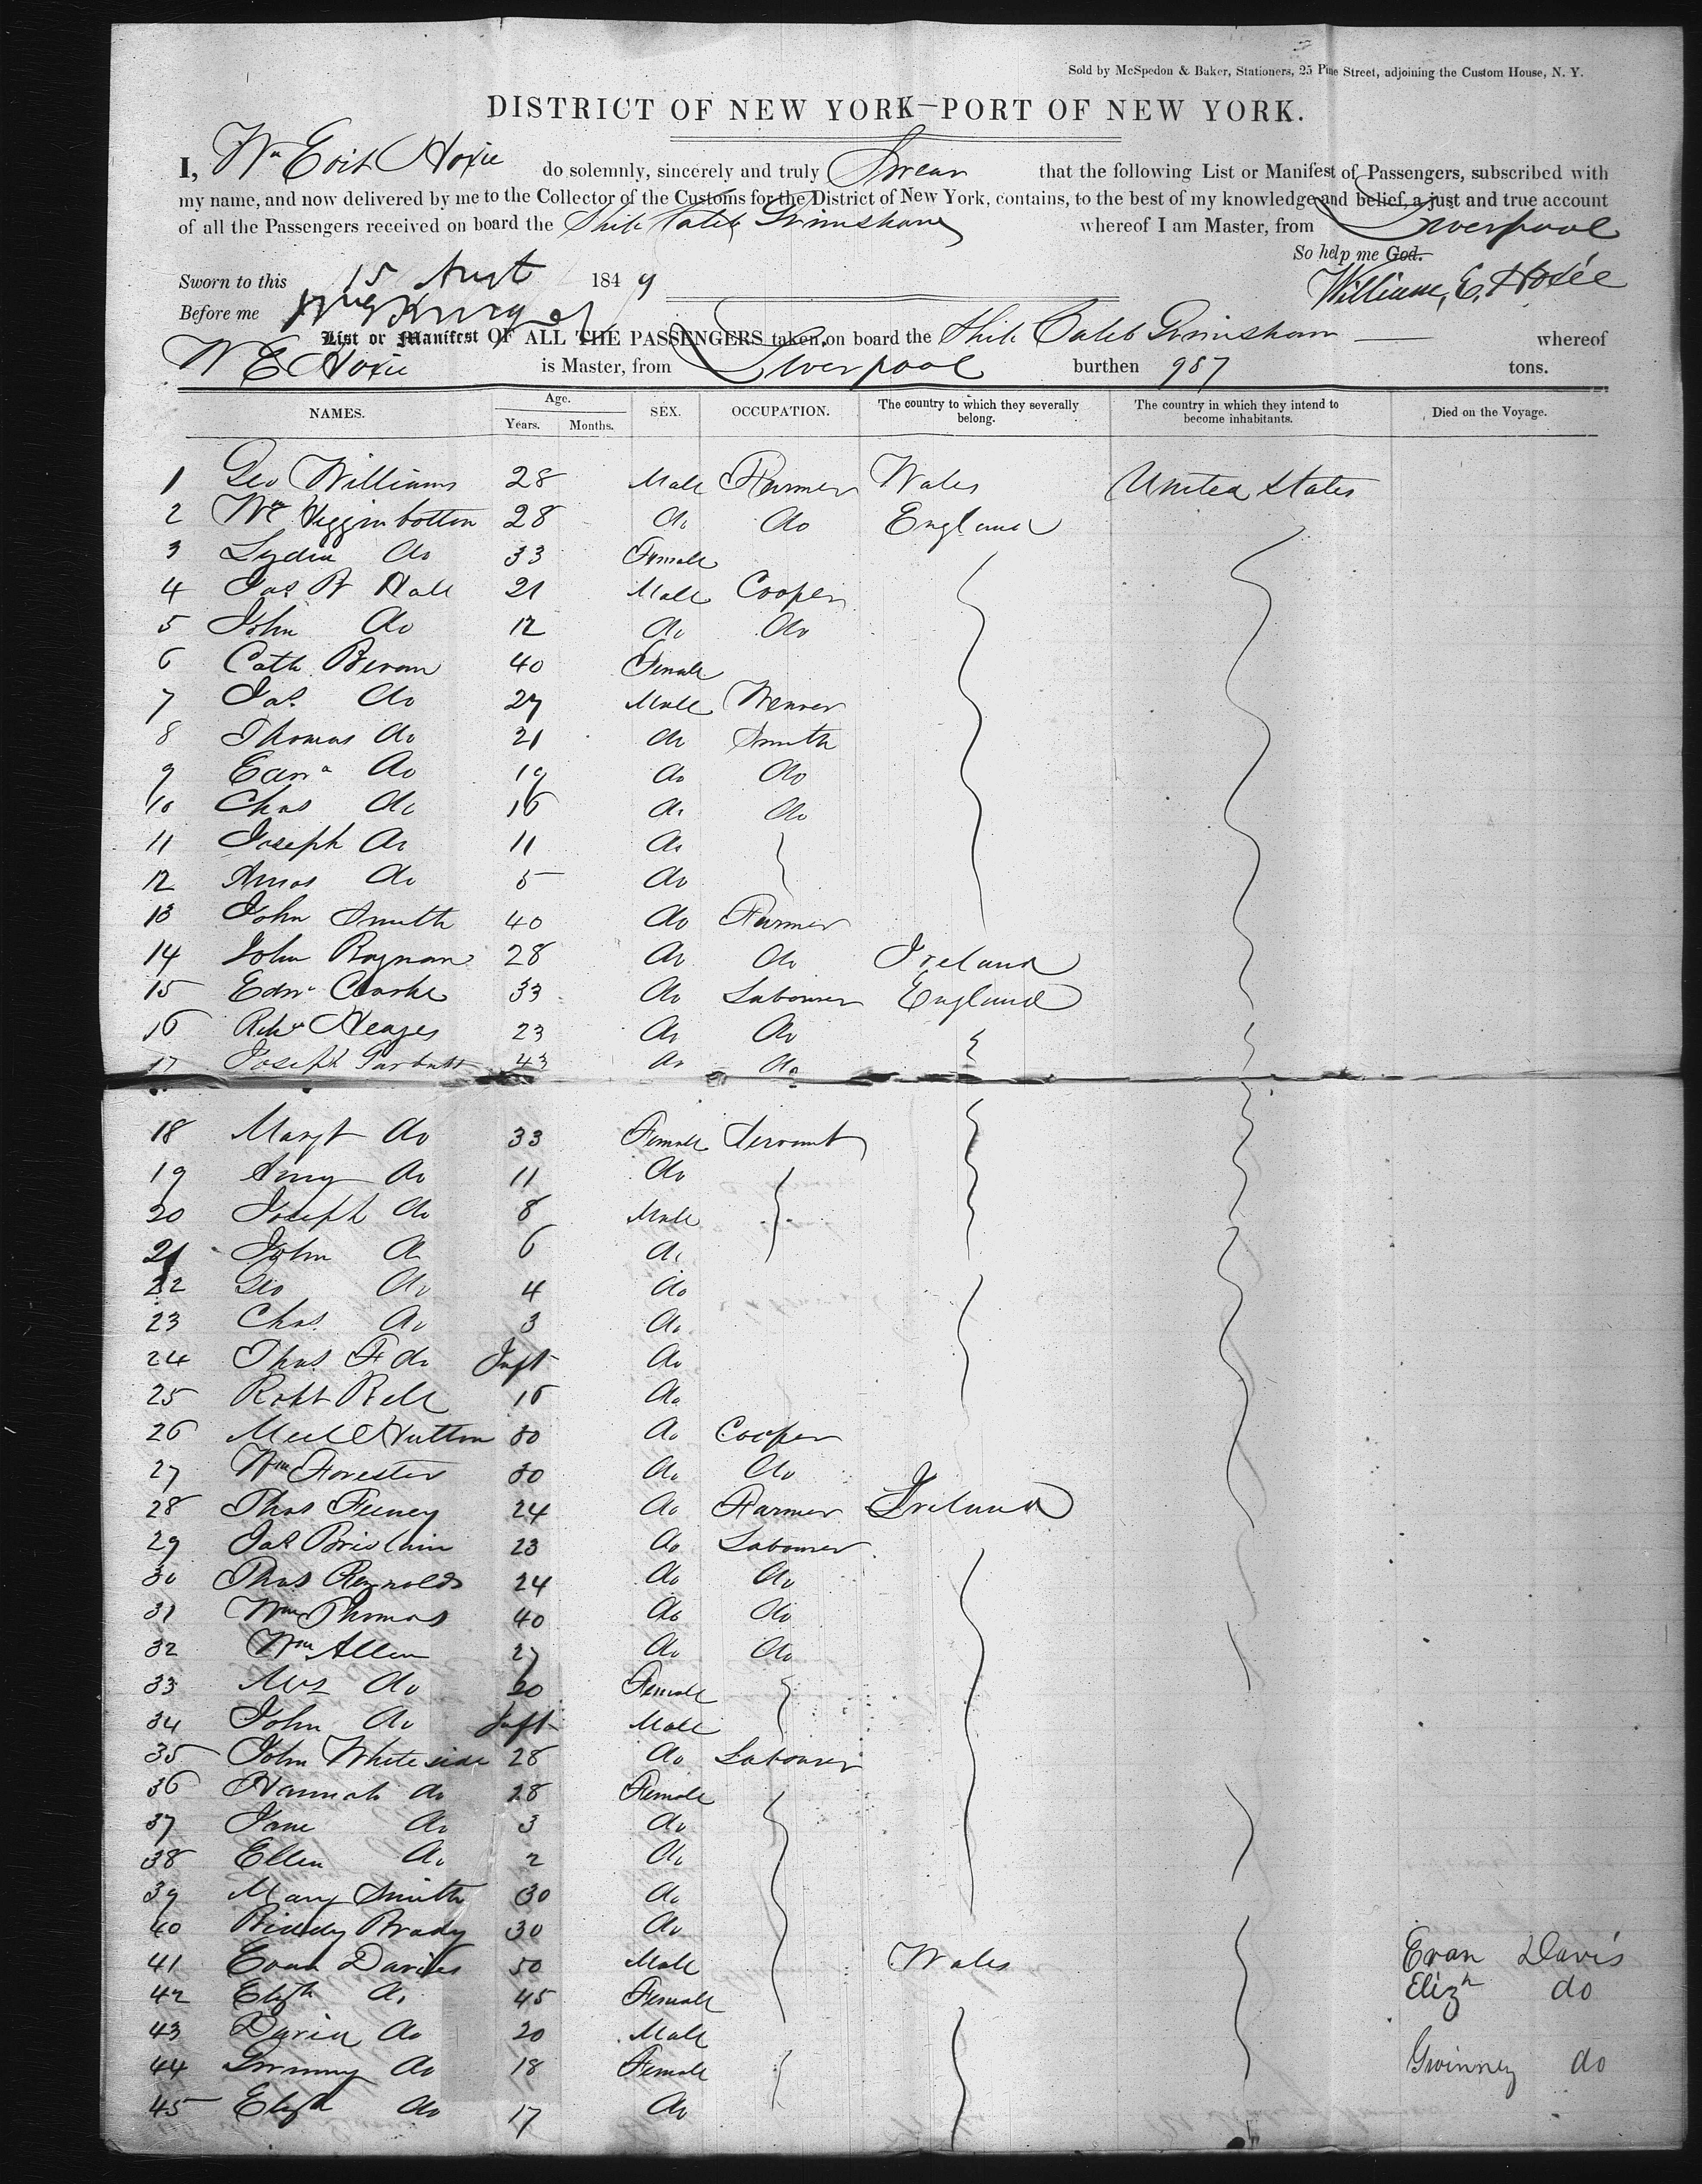 Sold by McSpedon & Baker, Stationers, 25 Pine Street, adjoining the Custom House, N. Y.
DISTRICT OF NEW YORK—PORT OF NEW YORK.
I, Wm Hoxie do solemnly, sincerely and truly Swear that the following List or Manifest of Passengers, subscribed with
my name, and now delivered by me to the Collector of the Customs for the District of New York, contains, to the best of my knowledge and belief, a just and true account
of all the Passengers received on board the Ship Caleb Grimshaw whereof I am Master, from Liverpool
So help me God.
Sworn to this 15 Aust 1849 William, E, Hoxie
Before me
List or Manifest OF ALL THE PASSENGERS taken on board the Ship Caleb Grimshaw whereof
W E Hoxie is Master, from Liverpool burthen 987 tons.
NAMES. Age. Years. Months. SEX. OCCUPATION. The country to which they severally belong. The country in which they intend to become inhabitants. Died on the Voyage.
1 Geo Williams 28 Male Farmer Wales United States
2 Wm Higginbottom 28 do do England
3 Lydia do 33 Female
4 Jas Hall 21 Male Cooper
5 John do 12 do do
6 Cath Bevan 40 Female
7 Jas do 27 Male Weaver
8 Thomas do 21 do Smith
9 Edwd do 19 do do
10 Chas do 16 do do
11 Joseph do 11 do
12 Amos do 5 do
13 John Smith 40 do Farmer
14 John 28 do do Ireland
15 Edwd Clarke 33 do Labourer England
16 23 do do
17 Joseph Garbutt 43 do do
18 Margt do 33 Female Servant
19 Amy do 11 do
20 Joseph do 8 Male
21 John do 6 do
22 Geo do 4 do
23 Chas do 3 do
24 Thos F do Inft do
25 Robt Bell 16 do
26 Hutton 30 do Cooper
27 Wm Forester 30 do do
28 Thos Feeney 24 do Farmer Ireland
29 Jas 23 do Labourer
30 Thos Reynolds 24 do do
31 Wm Thomas 40 do do
32 Wm Allen 27 do do
33 Mrs do 20 Female
34 John do Inft Male
35 John Whiteside 28 do Labourer
36 Hannah do 28 Female
37 Jane do 3 do
38 Ellen do 2 do
39 Mary Smith 30 do
40 Biddy Brady 30 do
41 Evan Davies 50 Male Wales Evan Davis
42 Elizth do 45 Female Elizh do
43 David do 20 Male
44 do 18 Female Gwinney do
45 Elizth do 17 do